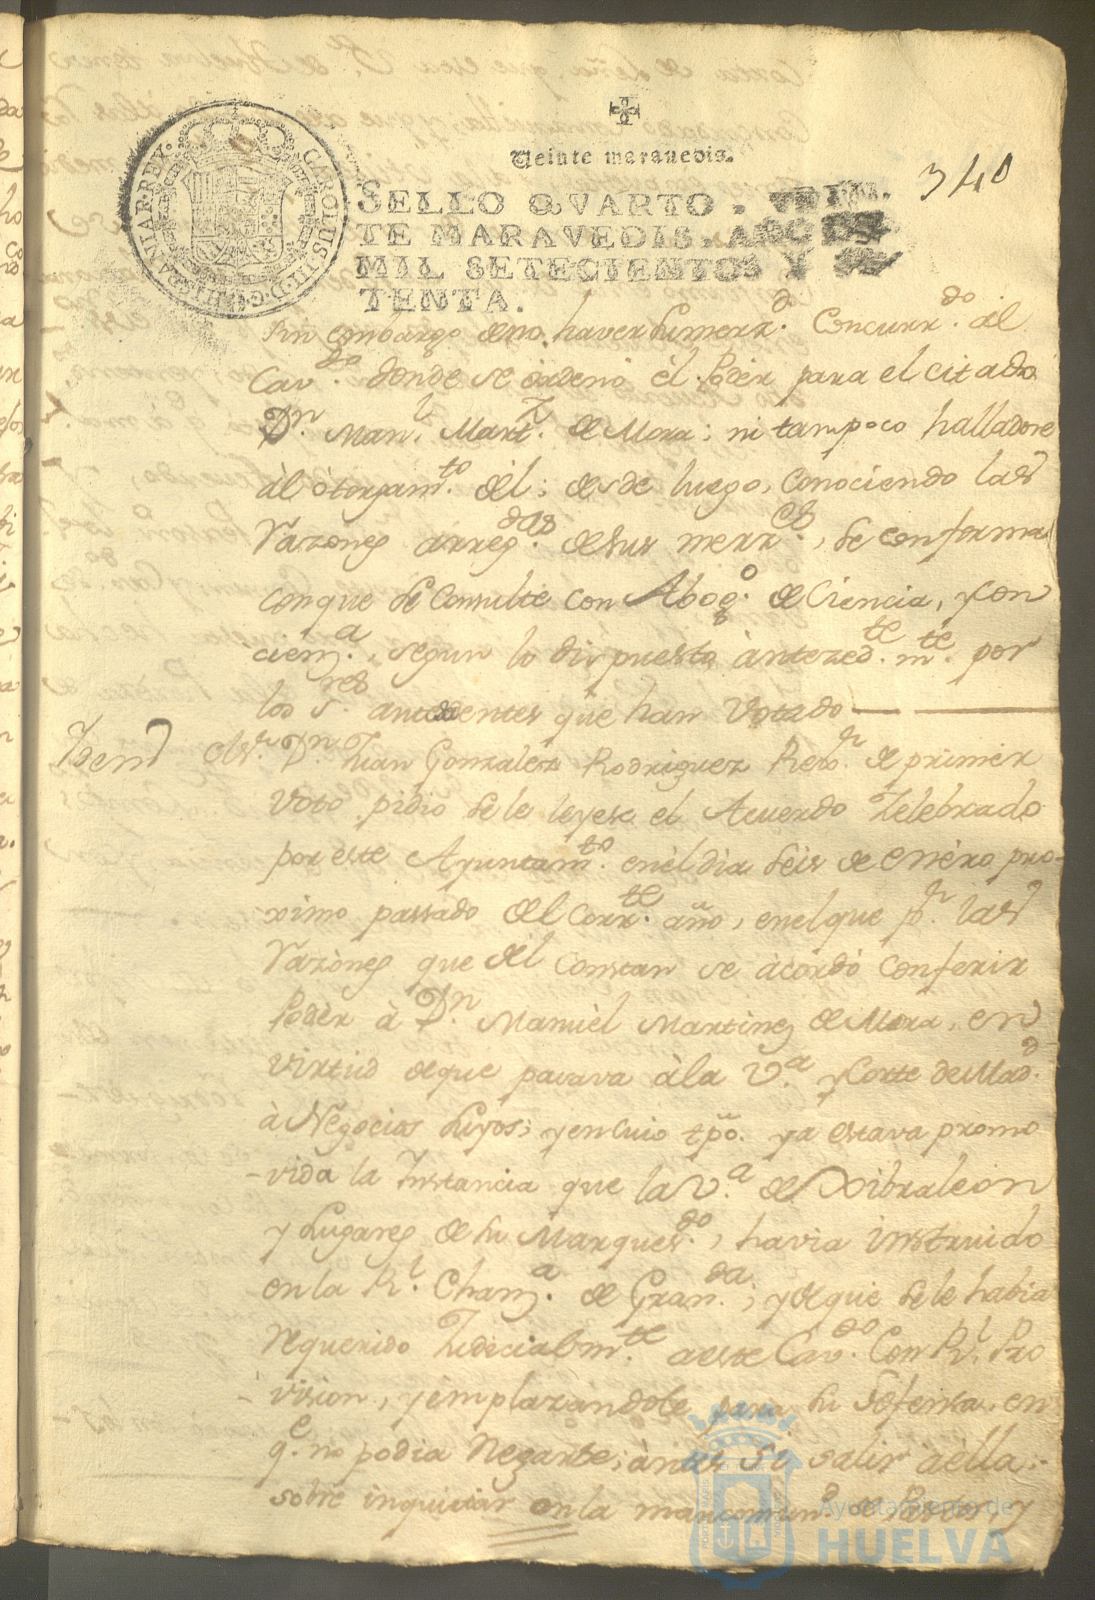 340
Veinte maravedis.
CAROLUS III D G HISPANIAR REX
SELLO QVARTO, VEIN
TE MARAVEDIS, AÑO DE
MIL SETECIENTOS Y SE
TENTA.
Sin embargo de no haver su merz.d Concurr.do al
Cav.do donde se òrdenó èl Poder para el citado
D.n Man.l Mart.z de Mora; ni tampoco halladose
àl òtorgam.to dèl; desde luego, conociendo las
razones arreg.das desus merz.es, se conforma
conque se Consulte con Abog.o de Ciencia, y con
ciem.a, segun lo dispuesto àntezed.te m.te por
los S.res antecedentes que han Votado
Item El S.r D.n Juan Gonzalez Rodriguez Rexo.r de primèr
Voto pidio se le leyese el Acuerdo Zelebrado
por este Ayuntam.to en èl dia seis de enèro pro-
ximo passado del Corr.te año, enelque p.r las
razònes que dèl Constan se àcordó Conferir
Podèr à D.n Manuèl Martinez de Mora, en
virtud deque pasava àla V.a y Corte de Mad.d
à Negocios suyos; y en cuio tpo. ya estava promo
-vida la Instancia que la V.a de Xibraleon
y Lugares de su Marques.do, havia instruido
en la R.l Chan.a de Gran.da; y deque se le habia
requerido Judicialm.te aeste Cav.do Con R.l Pro
-vision, y èmplazandole para su defensa, en
q.e no podia negarse, àntes si salir aella
sobre inquietar en la mancomun.d de Pastos, y
Ayuntamiento de
HUELVA